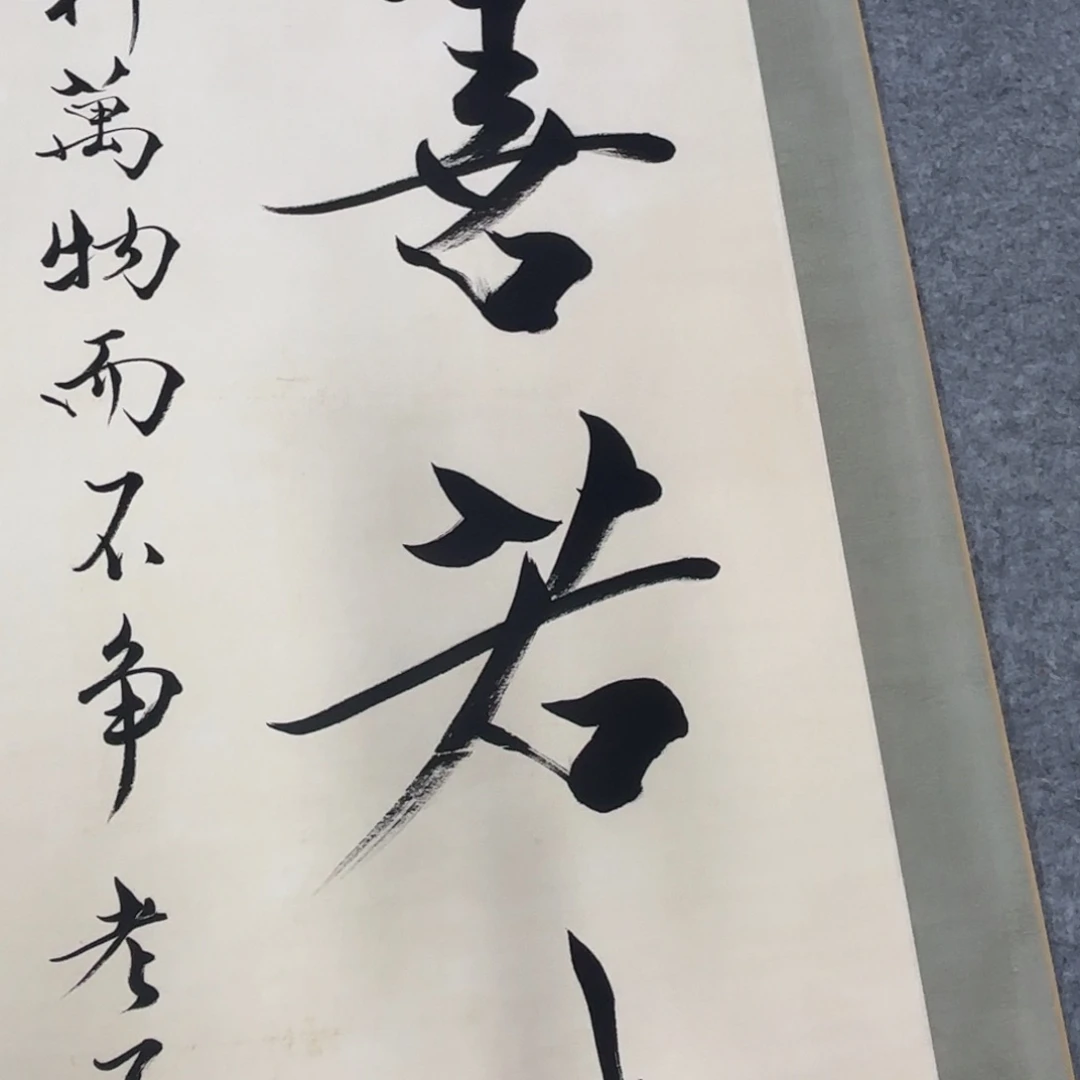 善若
利萬物而不争老子